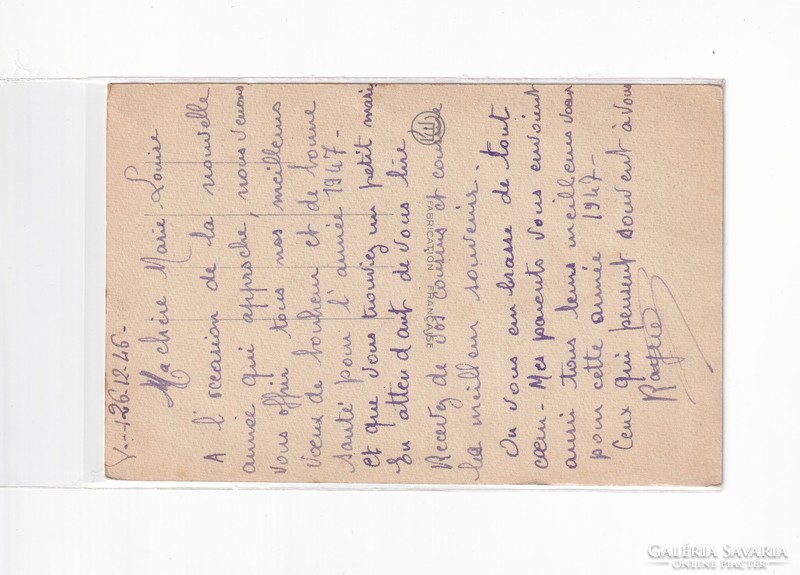 26.12.46-
Ma chère Marie Louise
A l'occasion de la nouvelle
année qui approche, nous venons
vous offrir tous nos meilleurs
vœux de bonheur et de bonne
santé pour l'année 1947-
et que vous trouviez un petit mari
En attendant de vous lire
Recevez de vos cousins et cousine
les meilleurs souvenirs.
On vous embrasse de tout
cœur- Mes parents vous envoient
aussi tous leurs meilleurs vœux
pour cette année 1947-
Ceux qui pensent souvent à vous
FABRICATION FRANÇAISE
GALÉRIA SAVARIA
ONLINE PIACTÉR